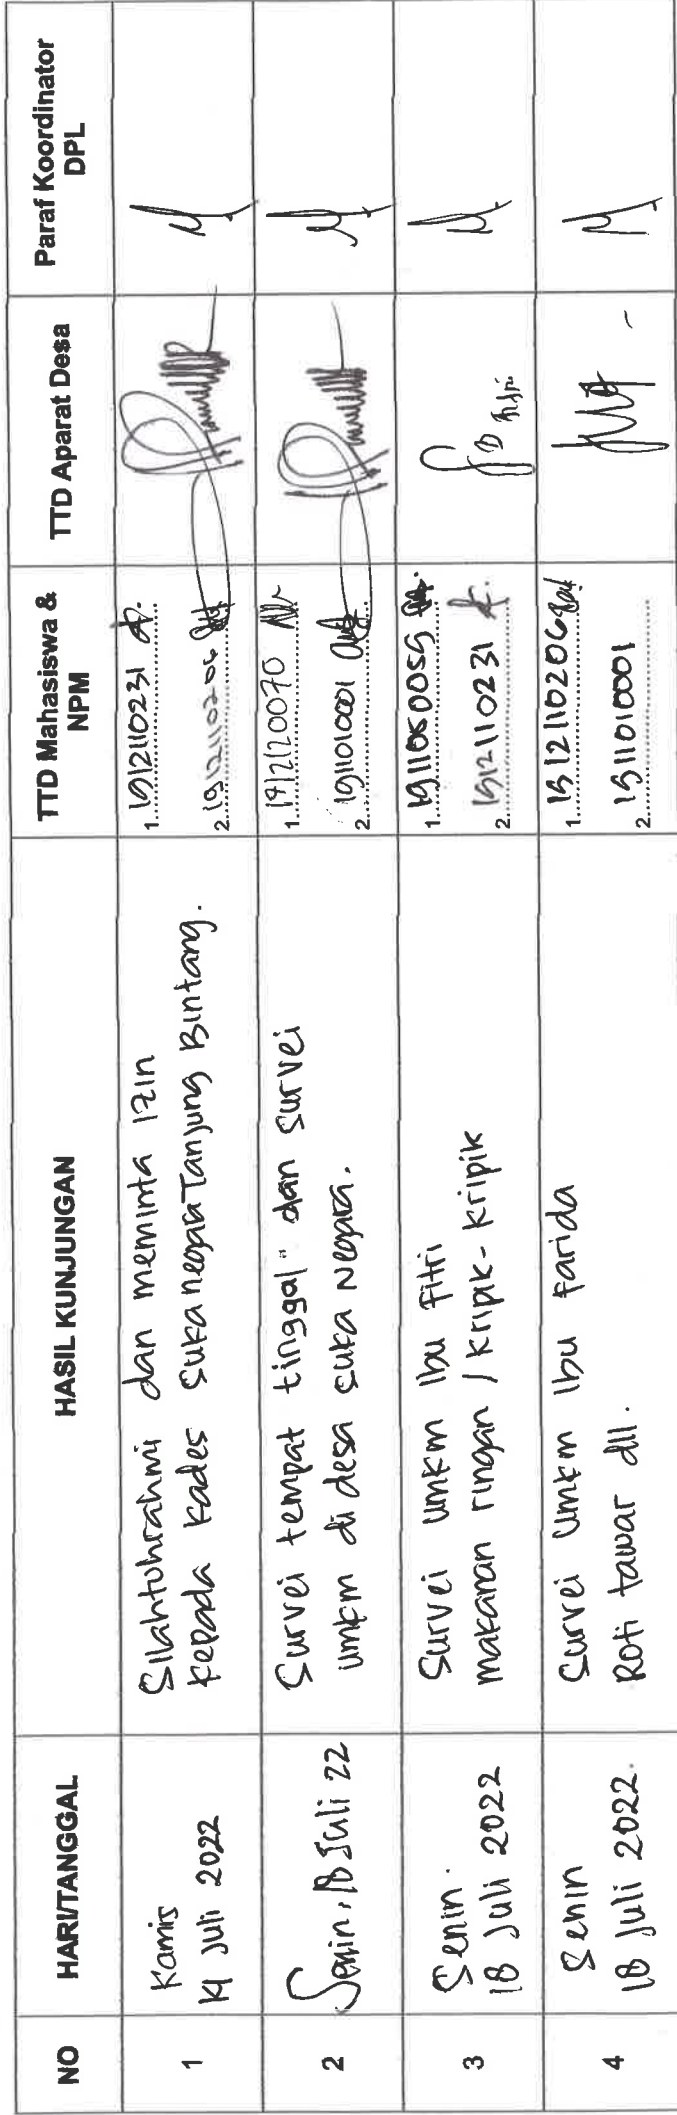 NO
HARI/TANGGAL
HASIL KUNJUNGAN
TTD Mahasiswa &
NPM
TTD Aparat Desa
Paraf Koordinator
DPL
1
Kamis
14 Juli 2022
Silahtuhrahmi dan meminta izin
kepada kades sukanegara Tanjung Bintang.
1. 1912110231
2. 1912110206
2
Senin, 18 Juli 22
Survei tempat tinggal" dan survei
umkm di desa suka Negara.
1. 1912120070
2. 1911010001
3
Senin.
18 Juli 2022
Survei umkm Ibu Fitri
makanan ringan / kripik-kripik
1. 1911050059
2. 1912110231
4
Senin
18 Juli 2022.
Survei umkm Ibu Farida
Roti tawar dll.
1. 1912110206
2. 1911010001